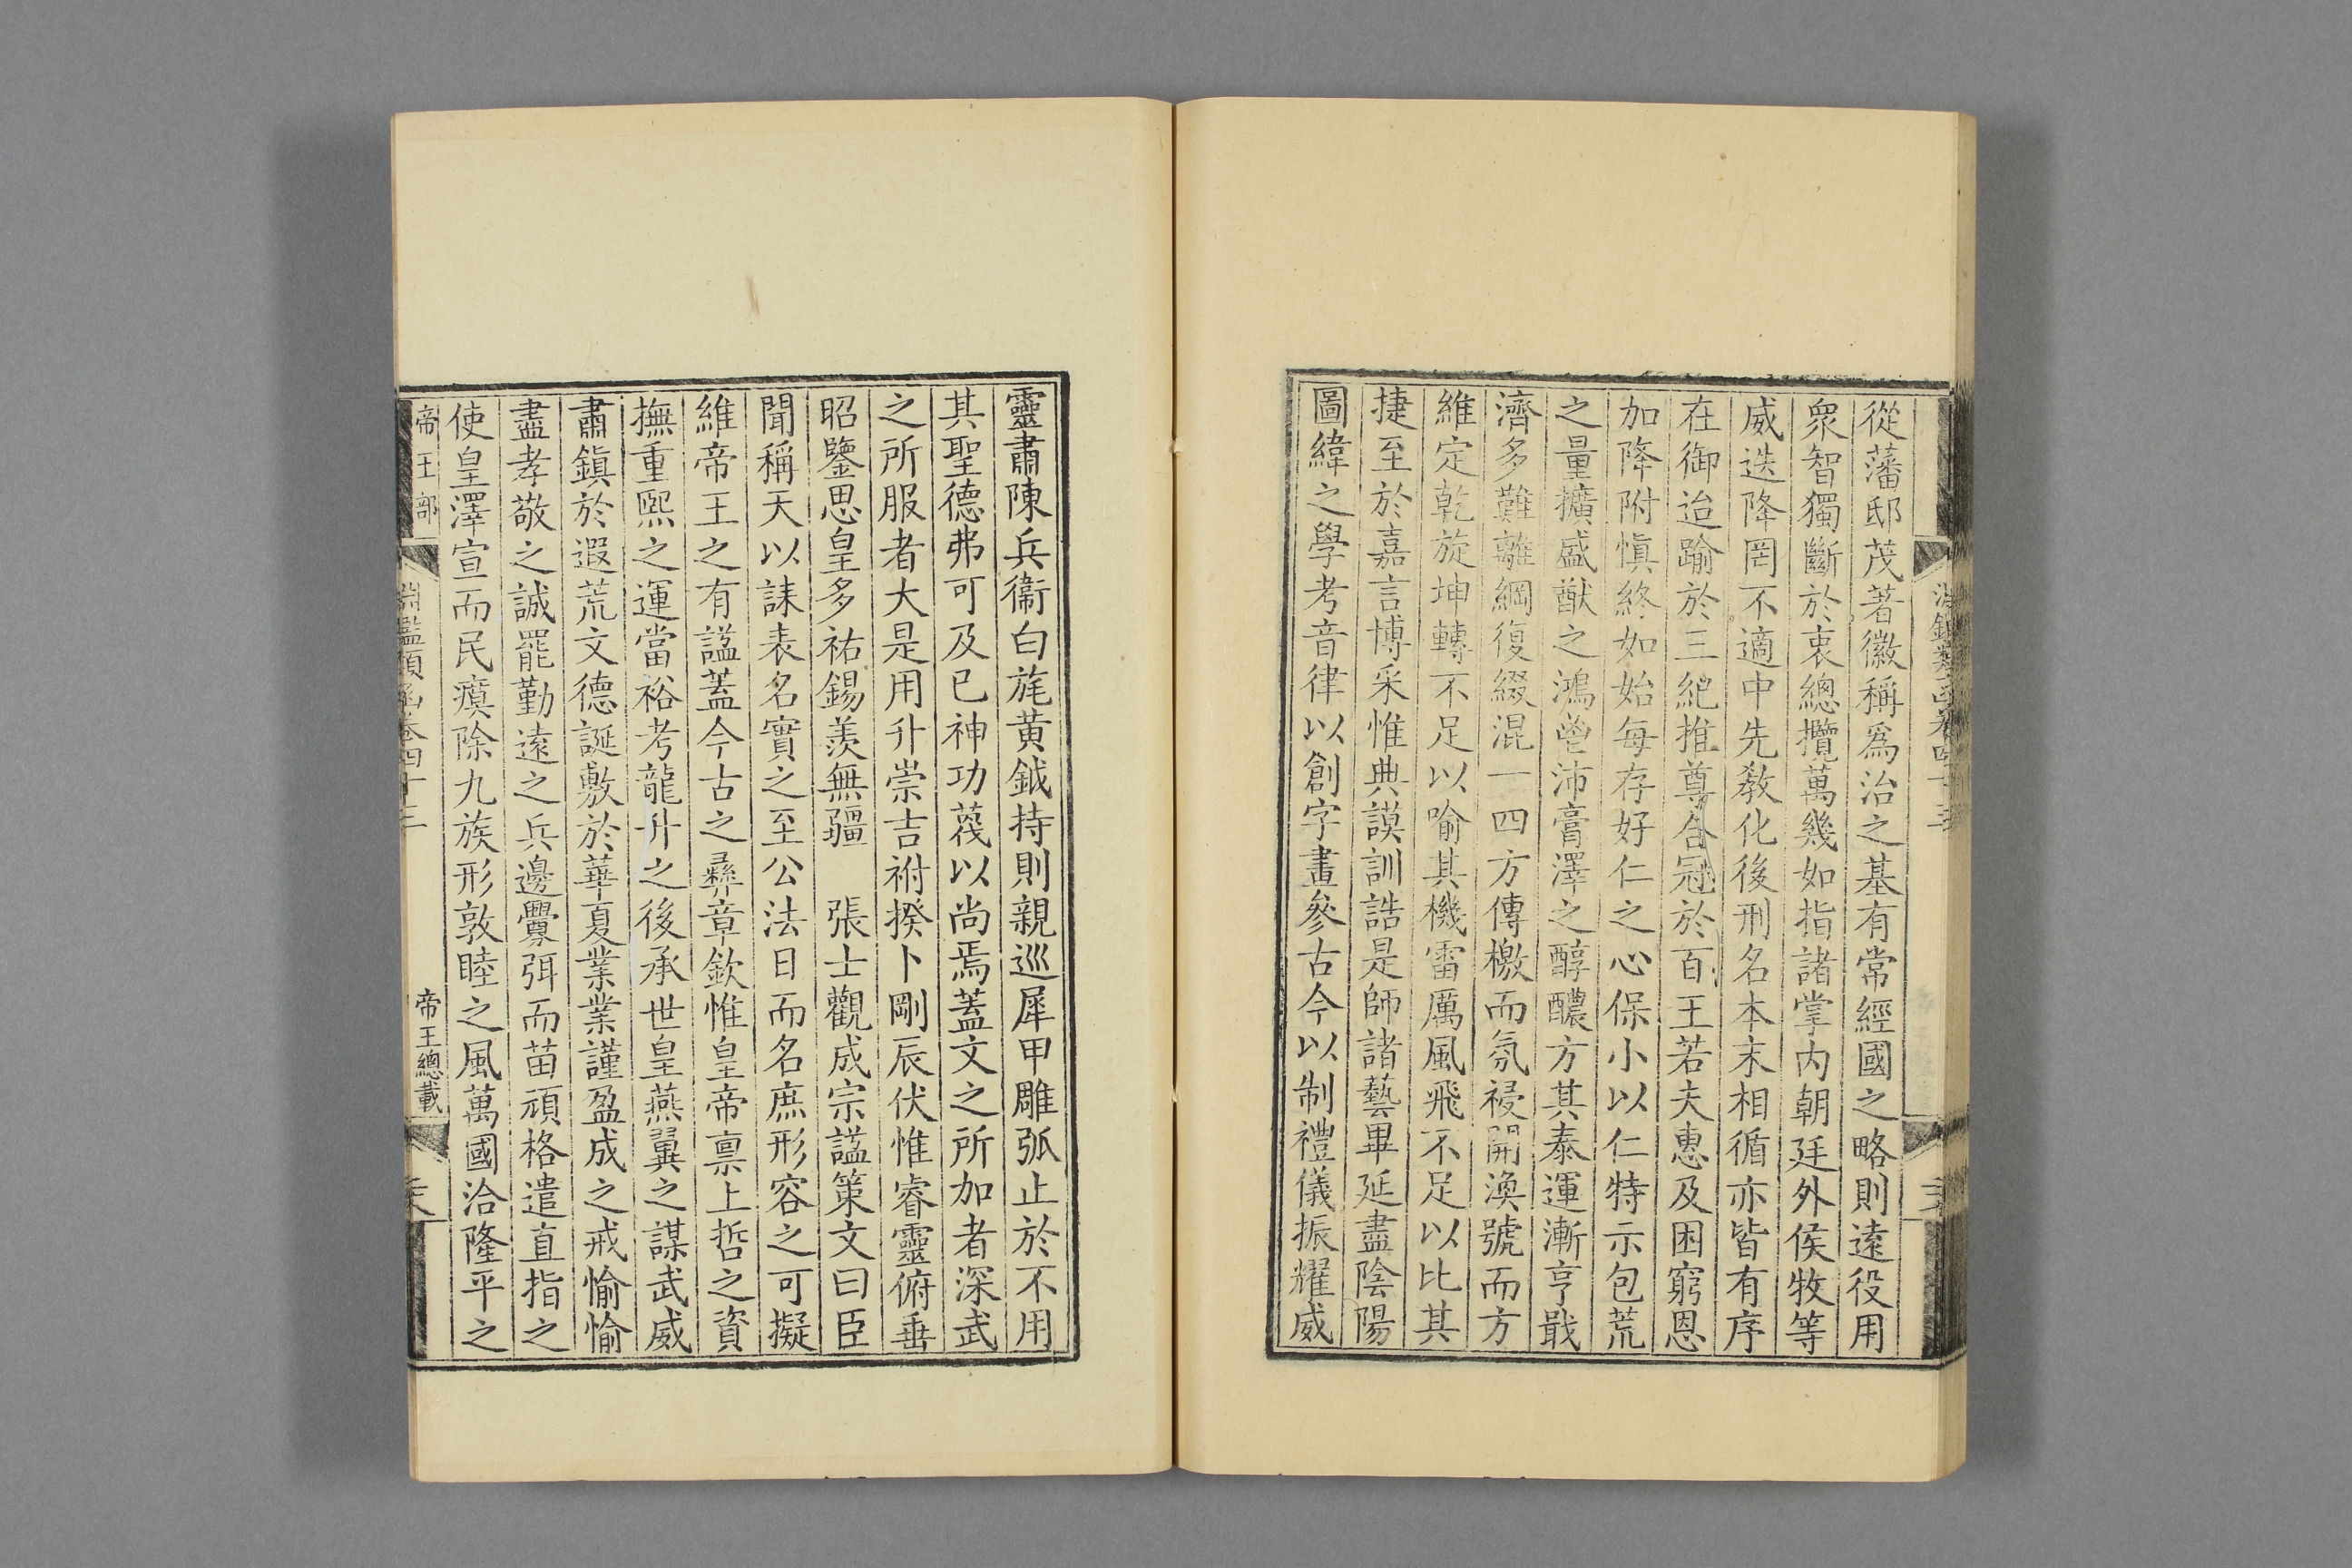 從藩邸茂著徽稱為治之基有常經國之略則遠役用
眾智獨斷於衷總攬萬幾如指諸掌內朝廷外侯牧等
威迭降罔不適中先教化後刑名本末相循亦皆有序
在御迨踰於三紀推尊合冠於百王若夫惠及困窮恩
加降附慎終如始每存好仁之心保小以仁特示包荒
之量擴盛猷之鴻瑩沛膏澤之醇醲方其泰運漸亨戢
濟多難離綱復綴混一四方傳檄而氛祲開渙號而方
維定乾旋坤轉不足以喻其機雷厲風飛不足以比其
捷至於嘉言博采惟典謨訓誥是師諸藝畢延盡陰陽
圖緯之學考音律以創字畫參古今以制禮儀振耀威
靈肅陳兵衞白旄黃鉞持則親巡犀甲雕弧止於不用
其聖德弗可及已神功蔑以尚焉蓋文之所加者深武
之所服者大是用升崇吉祔揆卜剛辰伏惟睿靈俯垂
昭鑒思皇多祐錫羨無疆　張士觀成宗謚策文曰臣
聞稱天以誄表名實之至公法日而名庶形容之可擬
維帝王之有謚蓋今古之彝章欽惟皇帝稟上哲之資
撫重熙之運當裕考龍升之後承世皇燕翼之謀武威
肅鎮於遐荒文德誕敷於華夏業業謹盈成之戒愉愉
盡孝敬之誠罷勤遠之兵邊釁弭而苗頑格遣直指之
使皇澤宣而民瘼除九族形敦睦之風萬國洽隆平之
帝王部　淵鑑類函卷四十三　帝王總載